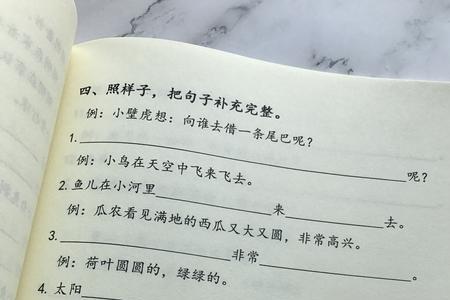 四、照样子，把句子补充完整。
例：小壁虎想：向谁去借一条尾巴呢？
1.____________________呢？
例：小鸟在天空中飞来飞去。
2.鱼儿在小河里__________来__________去。
例：瓜农看见满地的西瓜又大又圆，非常高兴。
3.__________非常__________。
例：荷叶圆圆的，绿绿的。
4.太阳__________